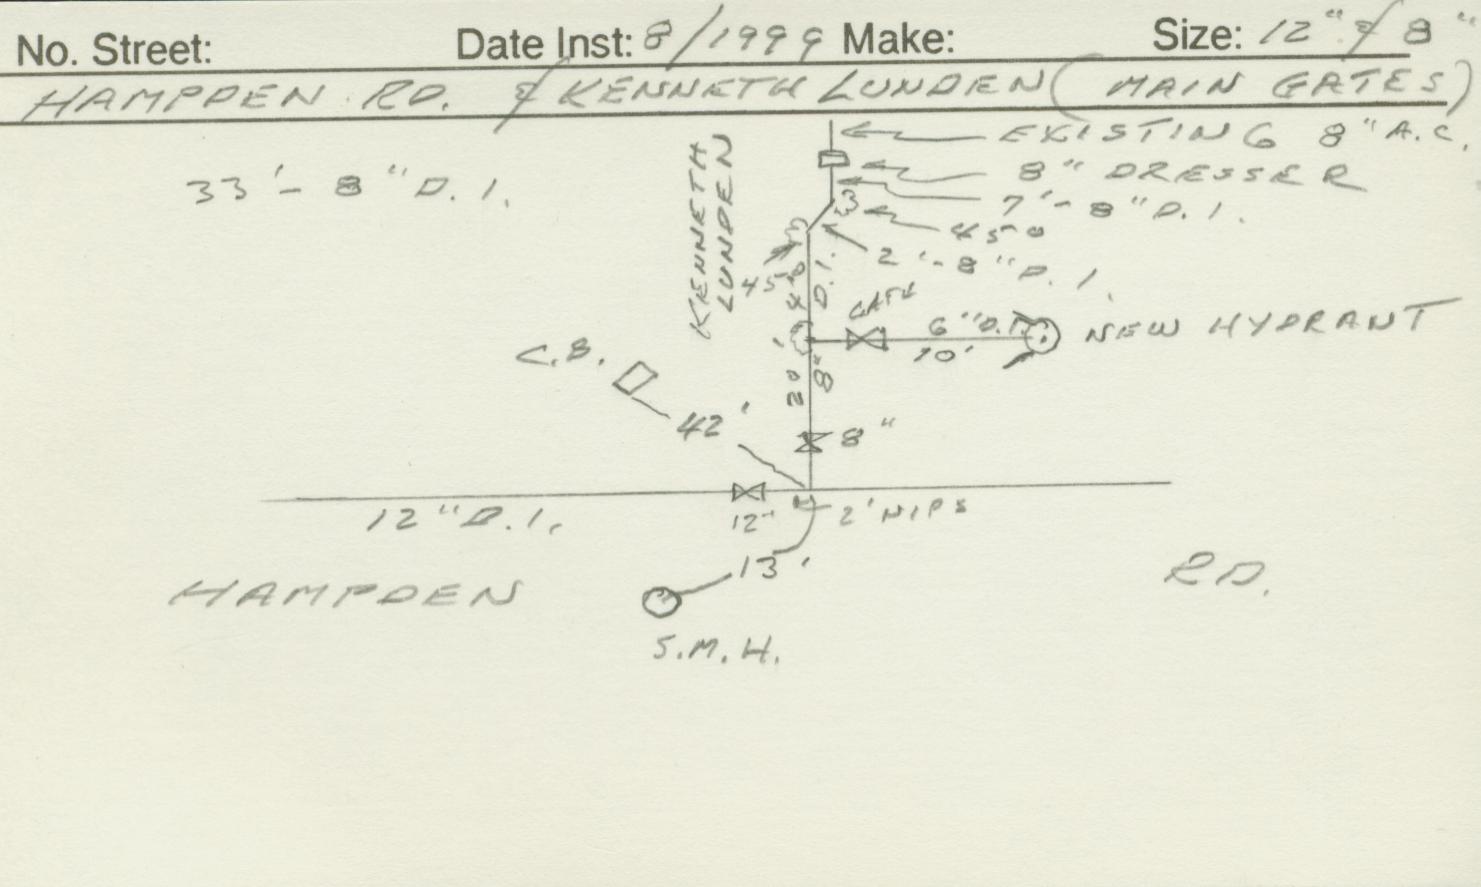 No. Street: Date Inst: 8/1999 Make: Size: 12" & 8"
HAMPDEN RD. & KENNETH LUNDEN (MAIN GATES)
EXISTING 8" A.C.
33'- 8" D.I.
8" DRESSER
7'- 8" D.I.
KENNETH
LUNDEN
45°
2'- 8" D.I.
45°
4' 8" D.I.
GATE
6" D.I.
10'
NEW HYDRANT
C.B.
42'
20' 8"
8"
12" D.I.
12"
2' NIPS
13'
HAMPDEN RD.
S.M.H.